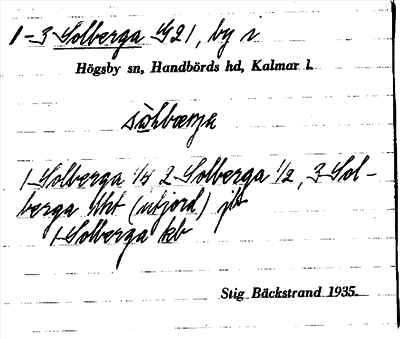 1-3 Solberga G21, by
Högsby sn, Handbörds hd, Kalmar l.
1 Solberga 1/4 2 Solberga 1/2, 3 Sol-
berga Uht (utjord)
1 Solberga kb
Stig Bäckstrand 1935.